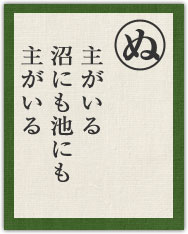 ぬ
主がいる
沼にも池にも
主がいる